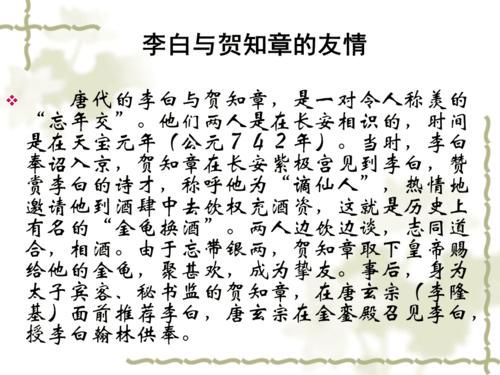 李白与贺知章的友情
唐代的李白与贺知章，是一对令人称羡的
“忘年交”。他们两人是在长安相识的，时间
是在天宝元年（公元７４２年）。当时，李白
奉诏入京，贺知章在长安紫极宫见到李白，赞
赏李白的诗才，称呼他为“谪仙人”，热情地
邀请他到酒肆中去饮权充酒资，这就是历史上
有名的“金龟换酒”。两人边饮边谈，志同道
合，相酒。由于忘带银两，贺知章取下皇帝赐
给他的金龟，聚甚欢，成为挚友。事后，身为
太子宾客、秘书监的贺知章，在唐玄宗（李隆
基）面前推荐李白，唐玄宗在金銮殿召见李白，
授李白翰林供奉。